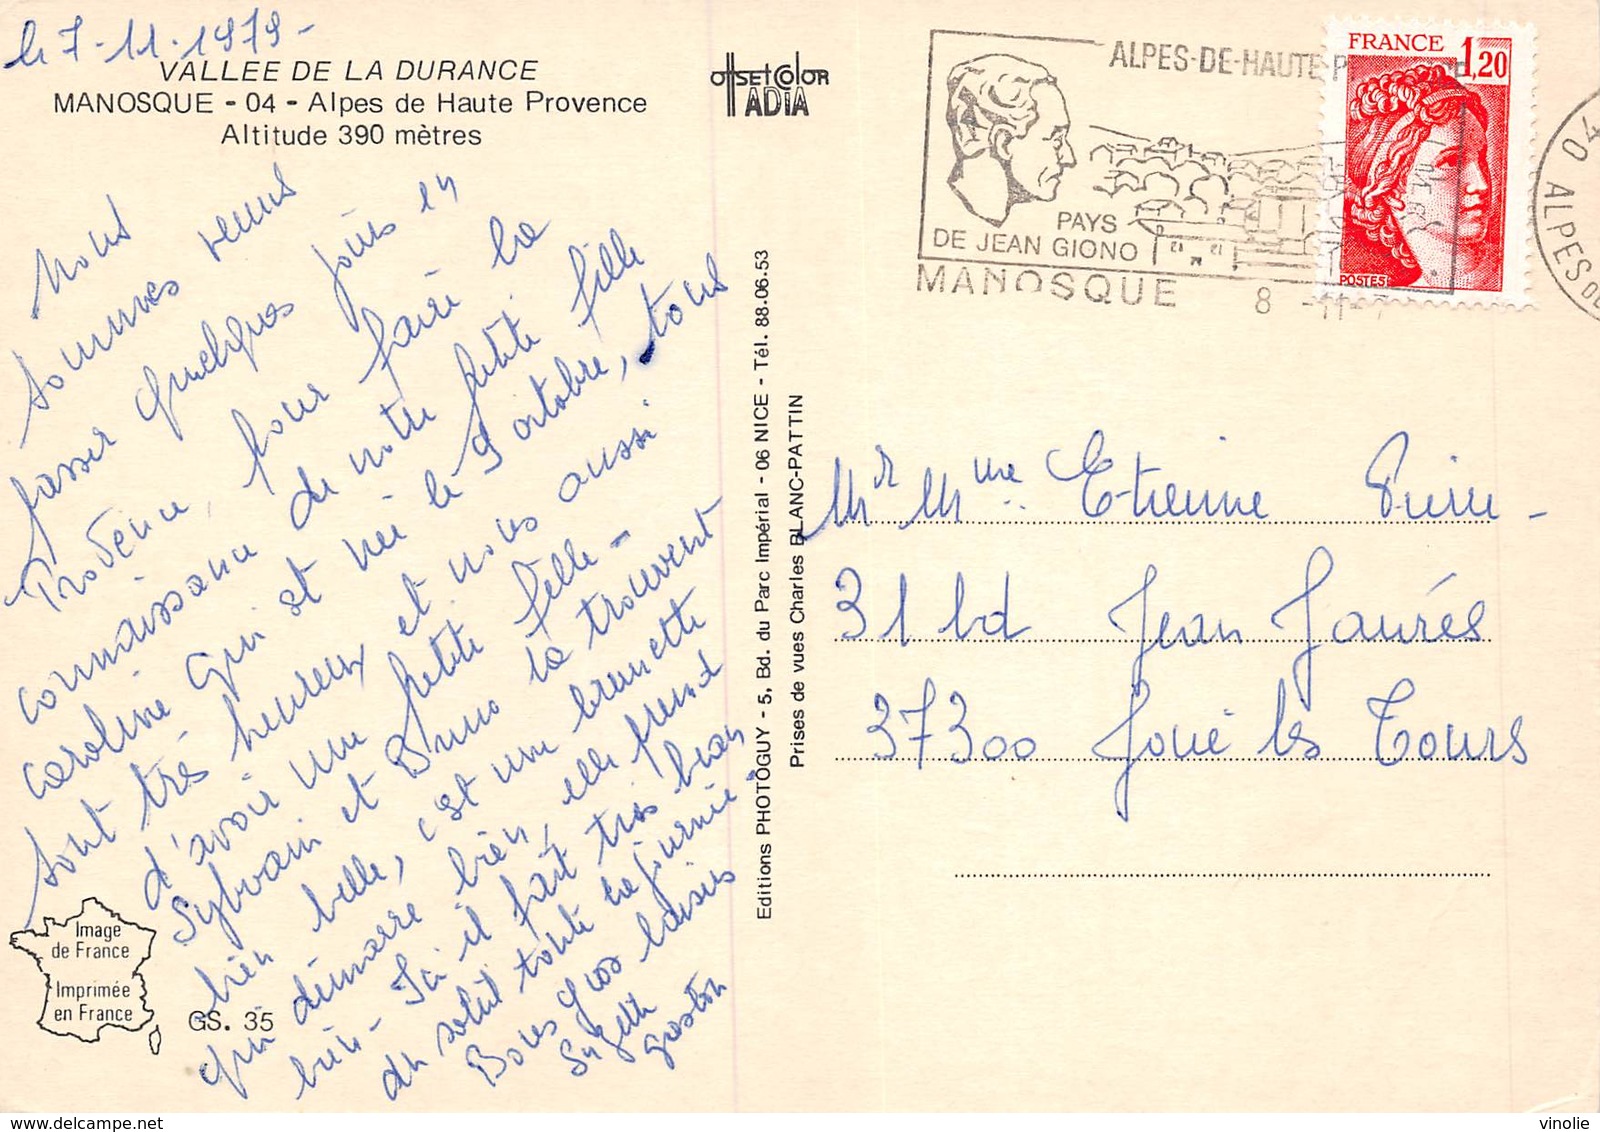 le 7-11-1979-
VALLEE DE LA DURANCE
MANOSQUE - 04 - Alpes de Haute Provence
Altitude 390 mètres
OffSET COlOR
IADIA
Nous
sommes venus
passer quelques jours en
Provence, pour faire la
connaissance de notre petite fille
Caroline qui est née le 9 octobre, tous
sont très heureux et nous aussi
d'avoir une petite fille -
Sylvain et Bruno la trouvent
bien belle, c'est une brunette
qui démarre bien, elle prend
bien - Ici il fait très beau,
du soleil toute la journée.
Bons gros baisers
gaston
Image
de France
Imprimée
en France
GS. 35
Editions PHOTOGUY - 5, Bd. du Parc Impérial - 06 NICE - Tél. 88.06.53
Prises de vues Charles BLANC-PATTIN
ALPES-DE-HAUTE
PAYS
DE JEAN GIONO
MANOSQUE
8 -11-
FRANCE
1,20
POSTES
04
ALPES DE
Mr Mme Etienne Pierre -
31 bd Jean Jaurés
37300 Joué les Tours
vinolie